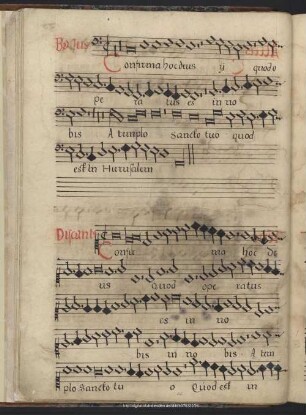 Bassus
Confirma hoc deus ij quod o
pe ra tus es in no
bis A templo Sancto tuo quod
est in Hierusalem
Discant
Confir ma hoc de
us Quod ope ratus
es in no
bis in no bis A tem
plo Sancto tu o Quod est in